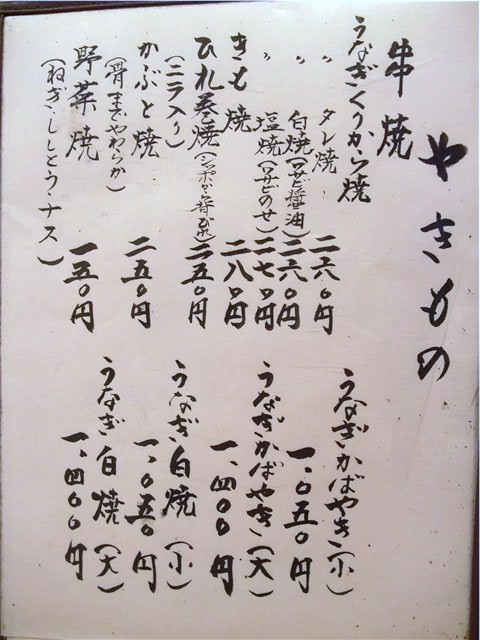 やきもの
串焼
うなぎくりから焼
タレ焼 二六〇円
〃 白焼(ワサビ醤油) 二六〇円
〃 塩焼(ワサビのせ) 二七〇円
きも焼 二八〇円
ひれ巻焼 二五〇円
(ニラ入り)
かぶと焼 二五〇円
(骨までやわらか)
野菜焼 一五〇円
(ねぎ・ししとう・ナス)
うなぎかばやき(小)
一、〇五〇円
うなぎかばやき(大)
一、四〇〇円
うなぎ白焼(小)
一、〇五〇円
うなぎ白焼(大)
一、四〇〇円